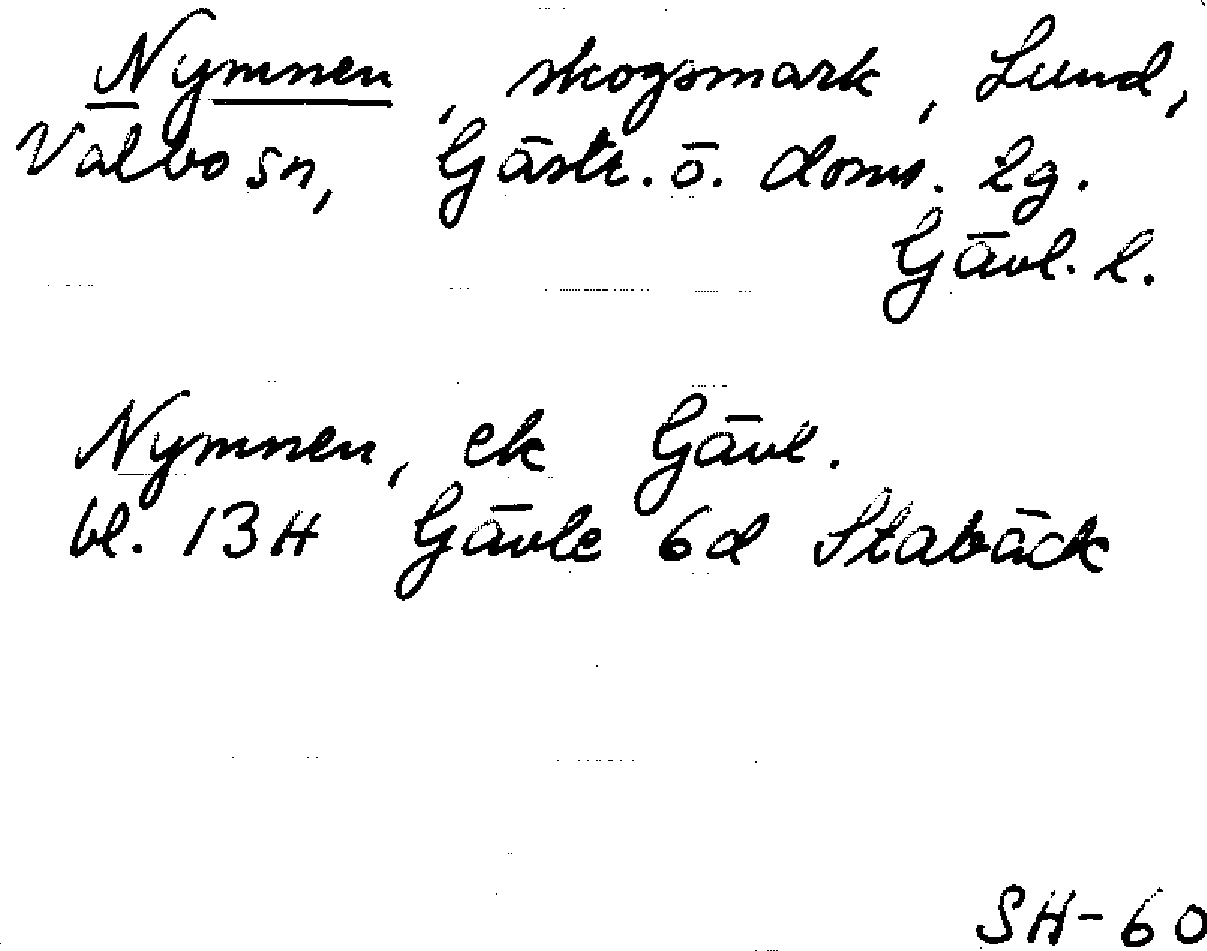 Nymnen, skogsmark, Lund,
Valbo sn, Gästr. ö. doms. lg.
Gävl. l.
Nymnen, ek Gävl.
bl. 13H Gävle 6d Stabäck
SH-60